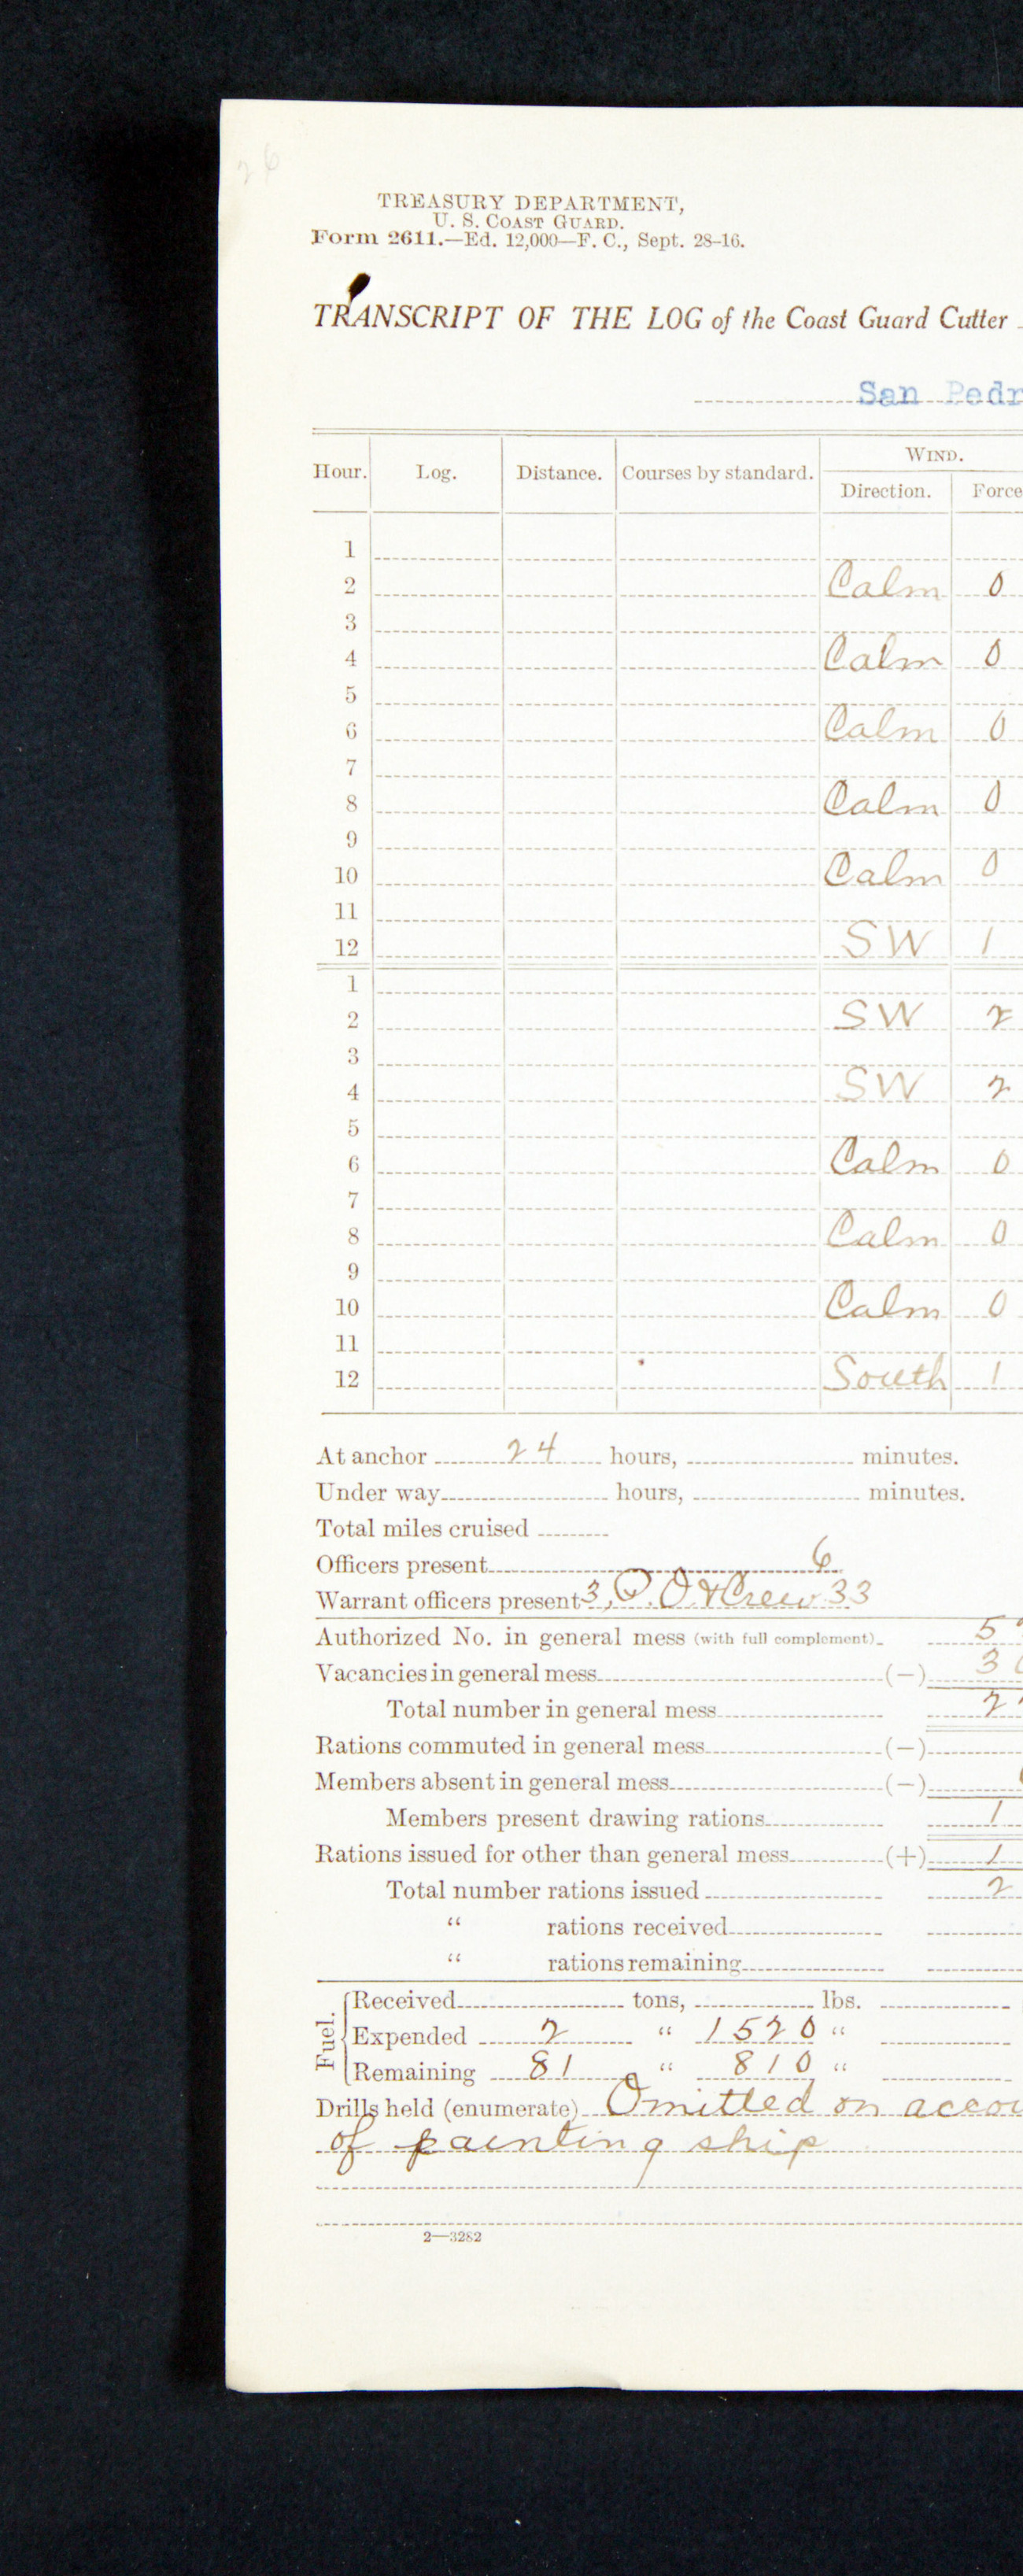 26
TREASURY DEPARTMENT,
U. S. COAST GUARD.
Form 2611.—Ed. 12,000—F. C., Sept. 28-16.
TRANSCRIPT OF THE LOG of the Coast Guard Cutter
San Pedr
Hour. Log. Distance. Courses by standard. WIND.
Direction. Force
1
2 Calm 0
3
4 Calm 0
5
6 Calm 0
7
8 Calm 0
9
10 Calm 0
11
12 SW 1
1
2 SW 2
3
4 SW 2
5
6 Calm 0
7
8 Calm 0
9
10 Calm 0
11
12 South 1
At anchor 24 hours, minutes.
Under way hours, minutes.
Total miles cruised
Officers present 6
Warrant officers present 3, P. O. & Crew 33
Authorized No. in general mess (with full complement) 5
Vacancies in general mess (—) 3
Total number in general mess 2
Rations commuted in general mess (—)
Members absent in general mess (—)
Members present drawing rations 1
Rations issued for other than general mess (+) 1
Total number rations issued 2
“ rations received
“ rations remaining
Fuel. Received tons, lbs.
Expended 2 “ 1520 “
Remaining 81 “ 810 “
Drills held (enumerate) Omitted on accou
of painting ship
2—3282